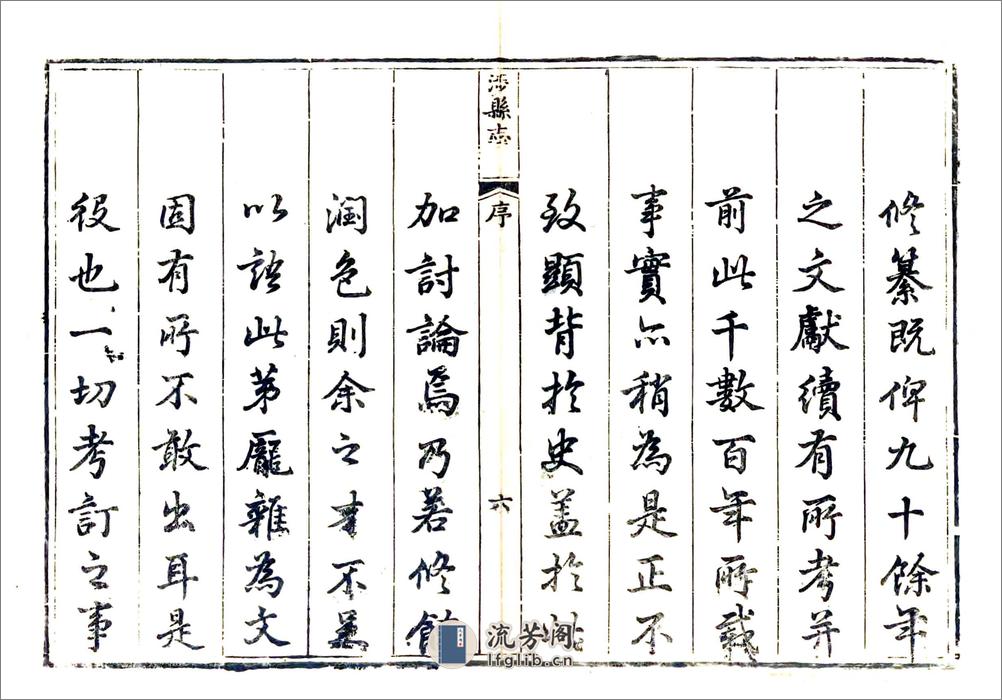 修纂既俾九十餘年
之文獻續有所考并
前此千數百年所載
事實亦稍為是正不
致顯背於史蓋於
涉縣志
序
六
加討論焉乃若修飾
潤色則余之才不足
以語此第龎雜為文
固有所不敢出耳是
役也一切考訂之事
流芳阁
lfglib.cn